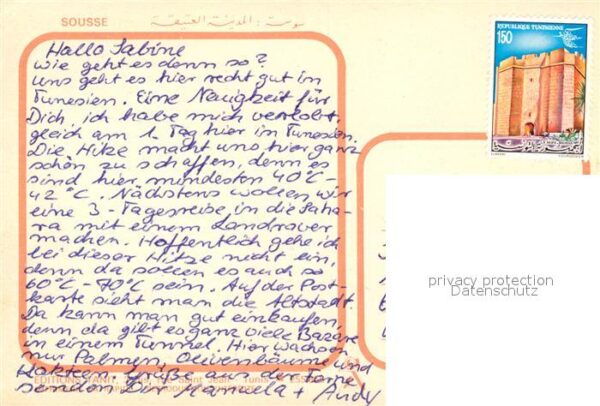 SOUSSE
سوسة : المدينة العتيقة
REPUBLIQUE TUNISIENNE
150
Hallo Sabine
wie geht es denn so?
uns geht es hier recht gut in
Tunesien. Eine Neuigkeit für
Dich, ich habe mich verlobt,
gleich am 1. Tag hier in Tunesien.
Die Hitze macht uns hier ganz
schön zu schaffen, denn es
sind hier mindesten 40°C-
42°C. Nächstens wollen wir
eine 3-Tagesreise in die Saha-
ra mit einem Landrover
machen. Hoffentlich gehe ich
bei dieser Hitze nicht ein,
denn da sollen es auch so
60°C-70°C sein. Auf der Post-
karte sieht man die Altstadt.
Da kann man gut einkaufen,
denn da gibt es ganz viele Bazare
in einem Tunnel. Hier wachsen
nur Palmen, Olivenbäume und
Kakteen. Grüße aus der Ferne
senden Dir Manuela + Andy
EDITIONS TANIT,
privacy protection
Datenschutz